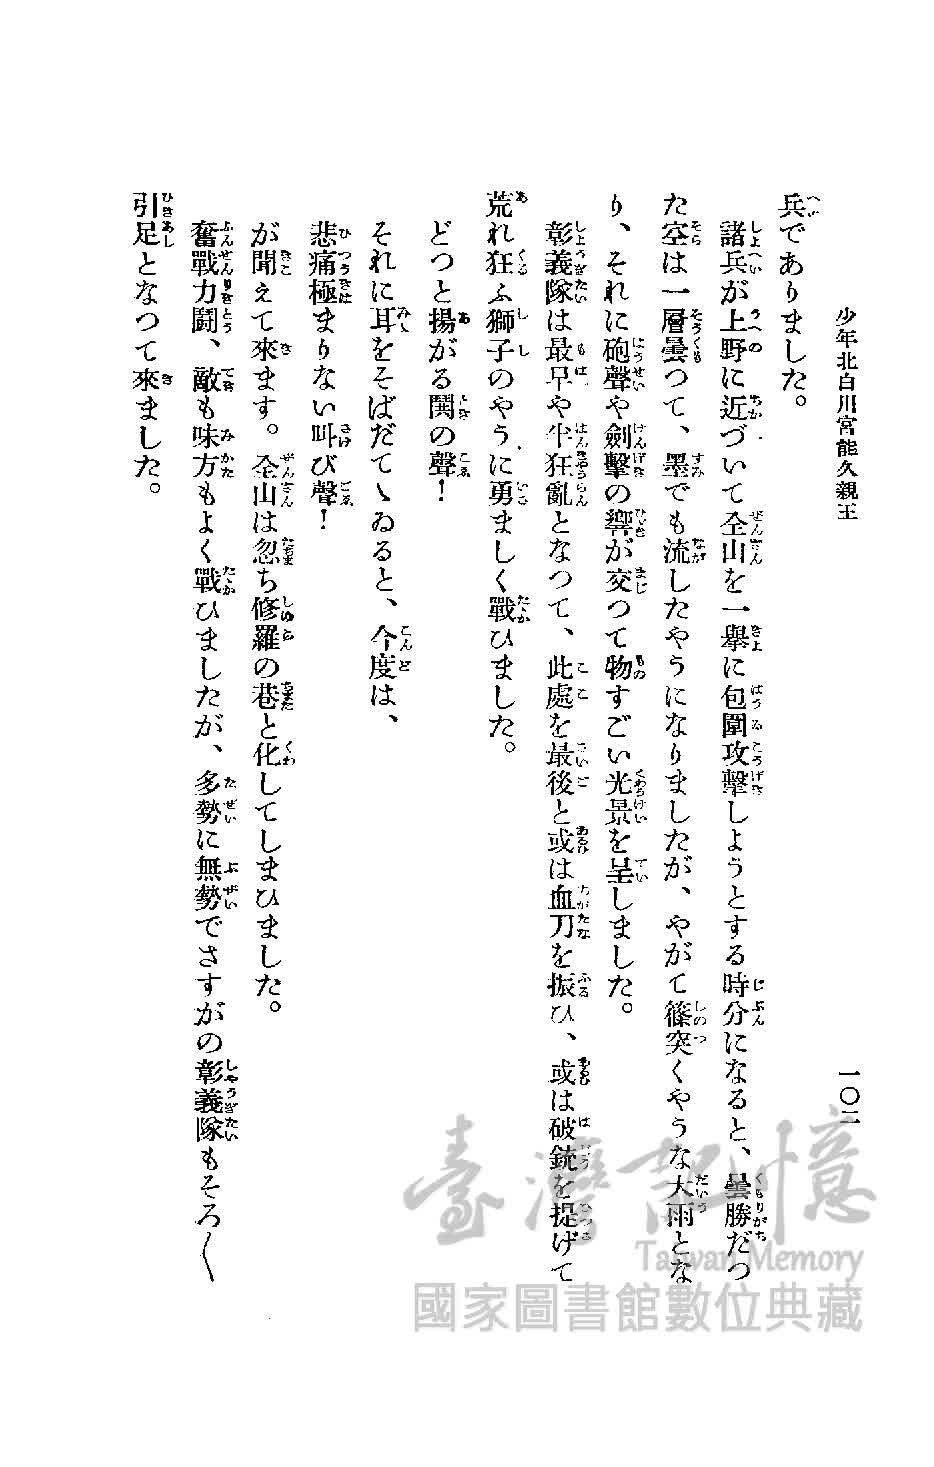 少年北白川宮能久親王
一〇二
兵でありました。
諸兵が上野に近づいて全山を一擧に包圍攻擊しようとする時分になると、曇勝だつ
た空は一層曇つて、墨でも流したやうになりましたが、やがて篠突くやうな大雨とな
り、それに砲聲や劍擊の響が交つて物すごい光景を呈しました。
彰義隊は最早や半狂亂となつて、此處を最後と或は血刀を振ひ、或は破銃を提げて
荒れ狂ふ獅子のやうに勇ましく戰ひました。
どつと揚がる鬨の聲！
それに耳をそばだてゝゐると、今度は、
悲痛極まりない叫び聲！
が聞えて來ます。全山は忽ち修羅の巷と化してしまひました。
奮戰力鬪、敵も味方もよく戰ひましたが、多勢に無勢でさすがの彰義隊もそろ〱
引足となつて來ました。
臺灣記憶
Taiwan Memory
國家圖書館數位典藏